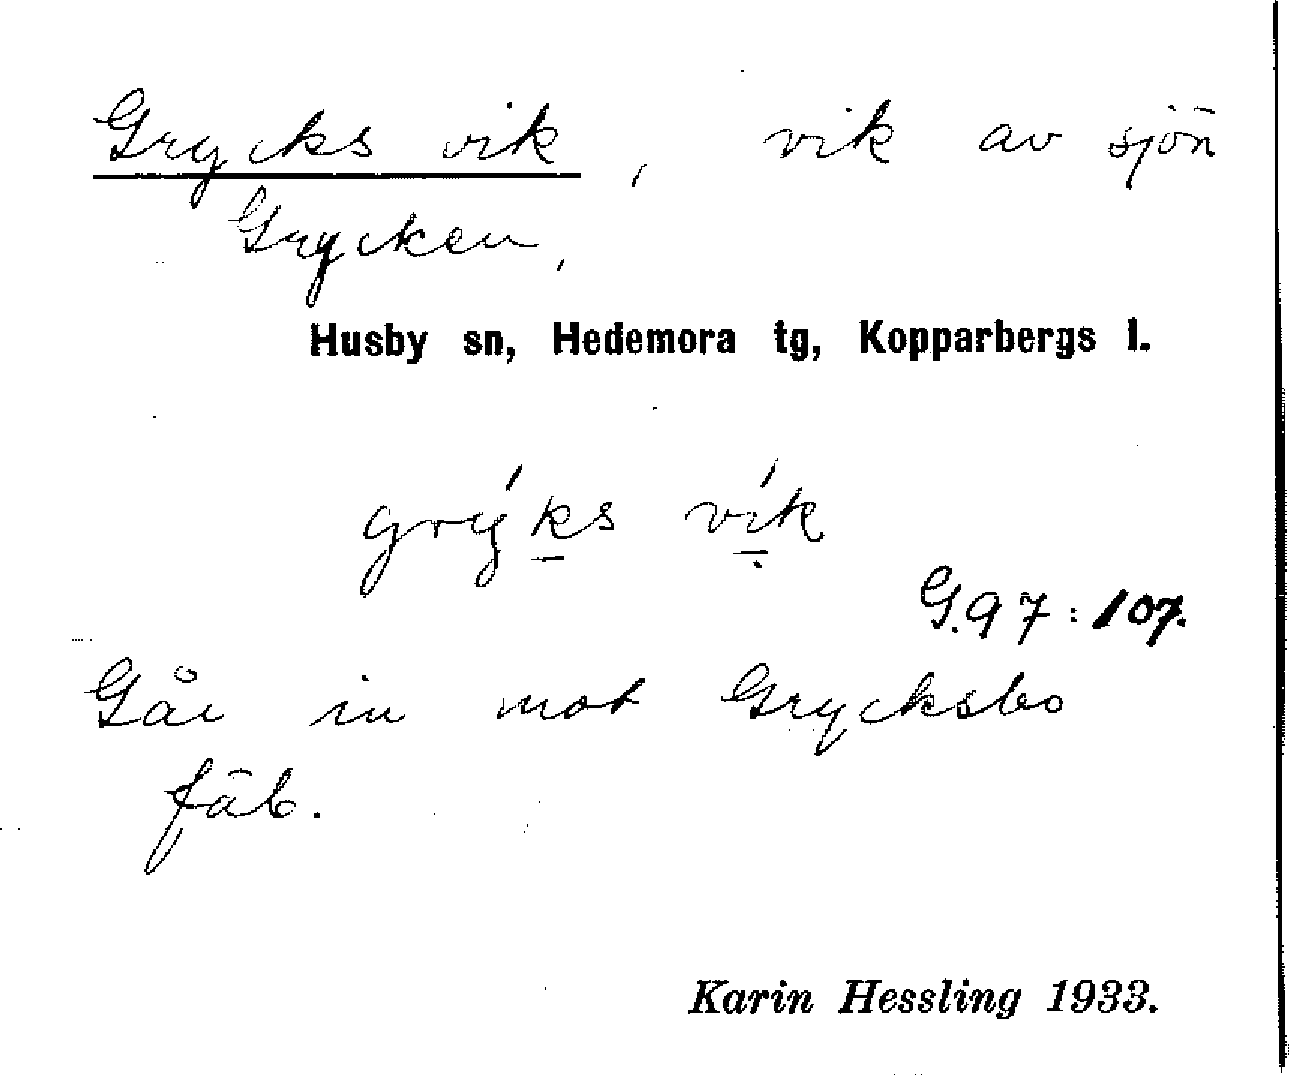 Grycks vik, vik av sjön
Grycken,
Husby sn, Hedemora tg, Kopparbergs l.
grýks vík
G.97:107.
Går in mot Grycksbo
fäb.
Karin Hessling 1933.